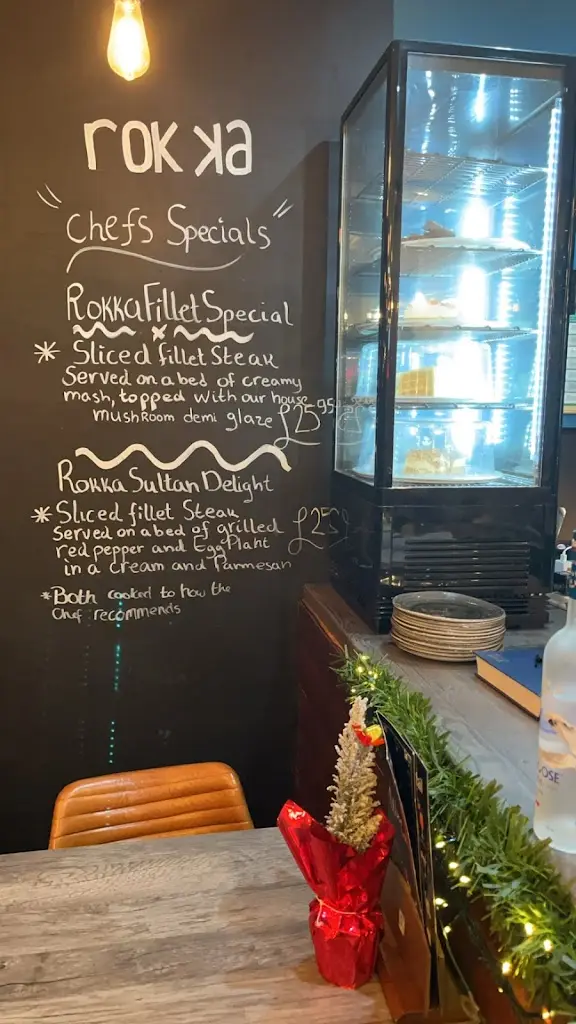 rokka
"Chefs Specials"
Rokka Fillet Special
* Sliced fillet Steak
Served on a bed of creamy
mash, topped with our house
mushroom demi glaze £25.95
Rokka Sultan Delight
* Sliced fillet Steak
Served on a bed of grilled
red pepper and Egg Plant
in a cream and Parmesan
* Both cooked to how the
Chef recommends
OSE